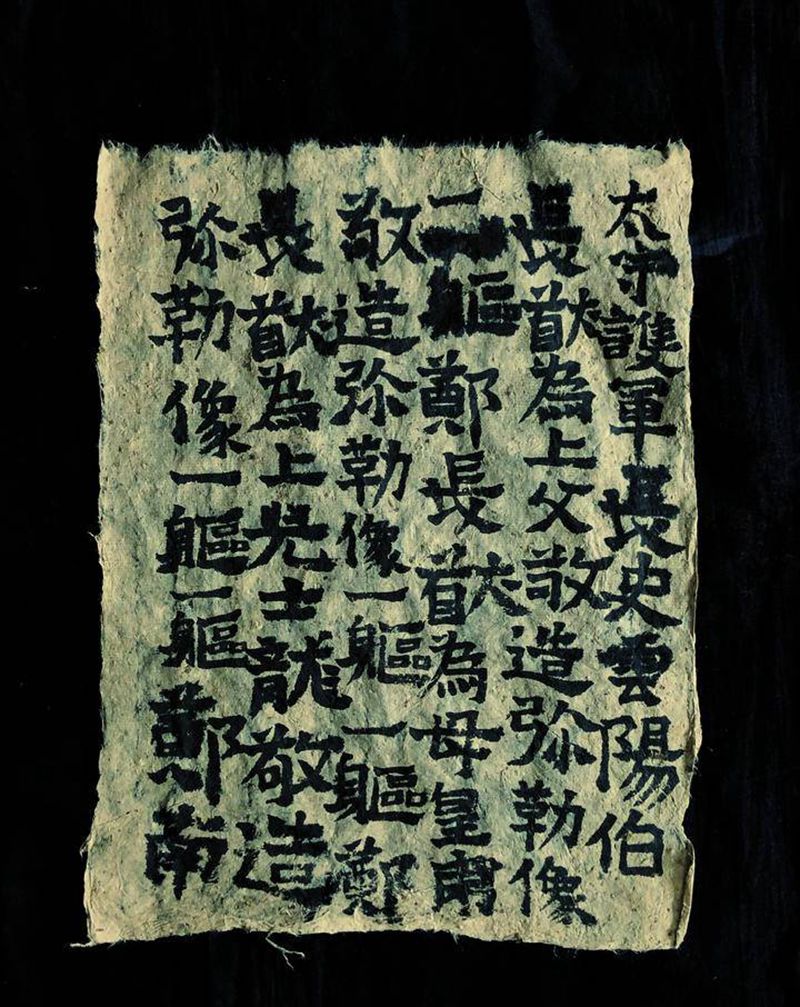 太守護軍長史雲陽伯
長猷為亡父敬造弥勒像
一軀鄭長猷為母皇甫
敬造弥勒像一軀一軀鄭
長猷為亡兒士龍敬造
弥勒像一軀一軀鄭南